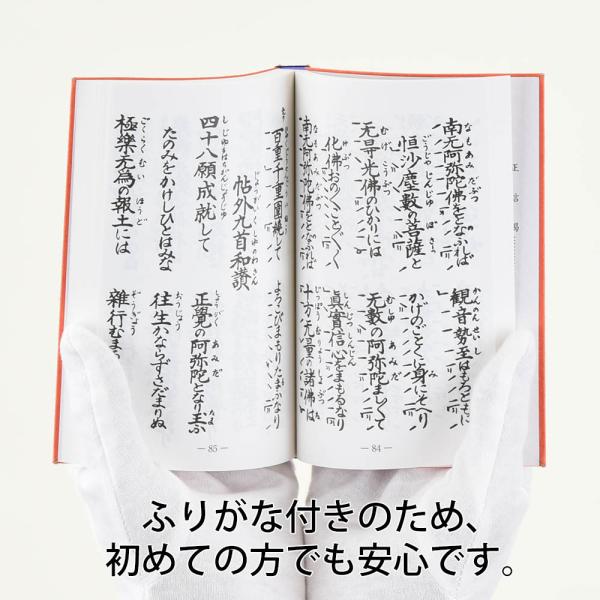 南无阿弥陀佛をとなふれば
観音勢至はもろともに
恒沙塵數の菩薩と
かげのごとくに身にそへり
无㝵光佛のひかりには
无數の阿弥陀ましまして
化佛おのくことべく
眞實信心をまもるなり
南无阿弥陀佛をとなふれば
十方无量の諸佛は
百重千重圍繞して
よろこびまもりたまふなり
帖外九首和讃
四十八願成就して
正覺の阿弥陀となり玉ふ
たのみをかけしひとはみな
往生かならずさだまりぬ
極樂无為の報土には
雜行むまる
— 84 —
— 85 —
ふりがな付きのため、
初めての方でも安心です。